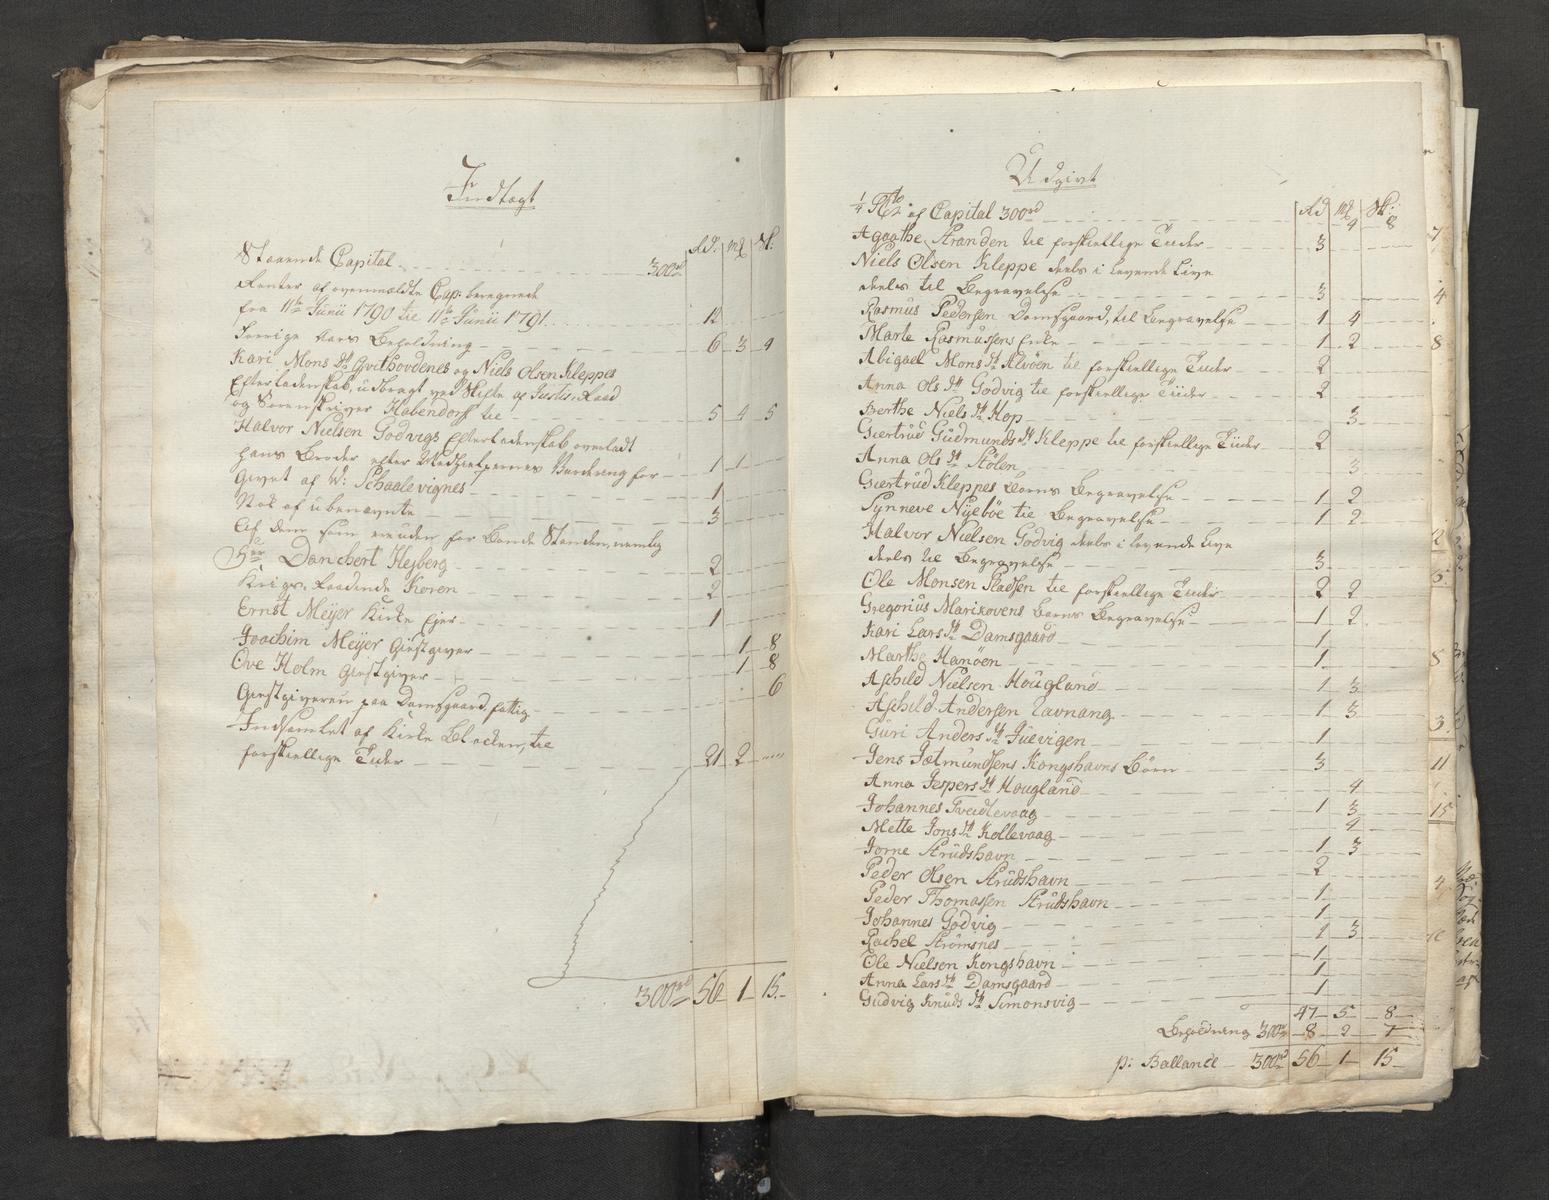 Indtægt
Rd. mk Sk.
Staaende Capital 300rd
Renter af ovenmældte Cap: beregnede
fra 11te Junii 1790 til 11te Junii 1791 12
Forrige Aars Beholdning 6 3 4
Kari Mons Dr Gvithovdenes og Niels Olsen Kleppes
Efterladenskab, udbragt ved Skifte af Justis-Raad
og Sorenskriver Habendorff til 5 4 5
Halvor Nielsen Godvigs Efterladenskab overladt
hans Broder efter Medhielpernes Vurdering for 1 1
Givet af W: Schaalevignes 1
Nok af ubenævnte 3
Af dem som ere uden for Bonde Standen, nemlig
Hr Danchert Hejberg 2
Krigs-Raadinde Koren 2
Ernst Meyer Kirke Ejer 1
Joachim Meyer Giestgiver 1 8
Ove Holm Giestgiver 1 8
Giestgiveren paa Damsgaard, fattig 6
Indsamlet af Kirke Blocken, til
forskiellige Tider 21 2
300rd 56 1 15
Udgivt
Rd mk Sk:
1/4 Pct af Capital 300rd 4 8
Agaathe Stranden til forskiellige Tider 3
Niels Olsen Kleppe deels i levende Live
deels til Begravelse 3
Rasmus Pedersen Damsgaard, til Begravelse 1 4
Marte Rasmussens Enke 1 2
Abigael Mons Dr Alvøen til forskiellige Tider 2
Anna Ols Dr Godvig til forskiellige Tiider 2
Berthe Niels Dr Hop 3
Giertrud Gudmunds Dr Kleppe til forskiellige Tiider 2
Anna Ols Dr Stølen 3
Giertrud Kleppes Barns Begravelse 1 2
Synneve Nyebøe til Begravelse 1 2
Halvor Nielsen Godvig deels i levende Live
deels til Begravelse 3
Ole Monsen Stadsen til forskiellige Tider 2 2
Gregorius Marikovens Barns Begravelse 1 2
Kari Lars Dr Damsgaard 1
Marthe Hanøen 1
Aschild Nielsen Hougland 1 3
Aschild Andersen Ravnang 1 3
Guri Anders Dr Juevigen 1
Jens Jetmundsens Kongshavns Børn 3
Anna Jespers Dr Hougland 4
Johannes Tveidtevaag 1 3
Mette Jons Dr Kollevaag 4
Jorne Strudshavn 1 3
Peder Olsen Strudshavn 2
Peder Thomassen Strudshavn 1
Johannes Godvig 1
Rachel Strømsnes 1 3
Ole Nielsen Kongshavn 1
Anna Lars Dr Damsgaard 1
Gudvig Knuds Dr Simonsvig 1
47 5 8
Beholdning 300rd 8 2 7
p: Ballance 300rd 56 1 15